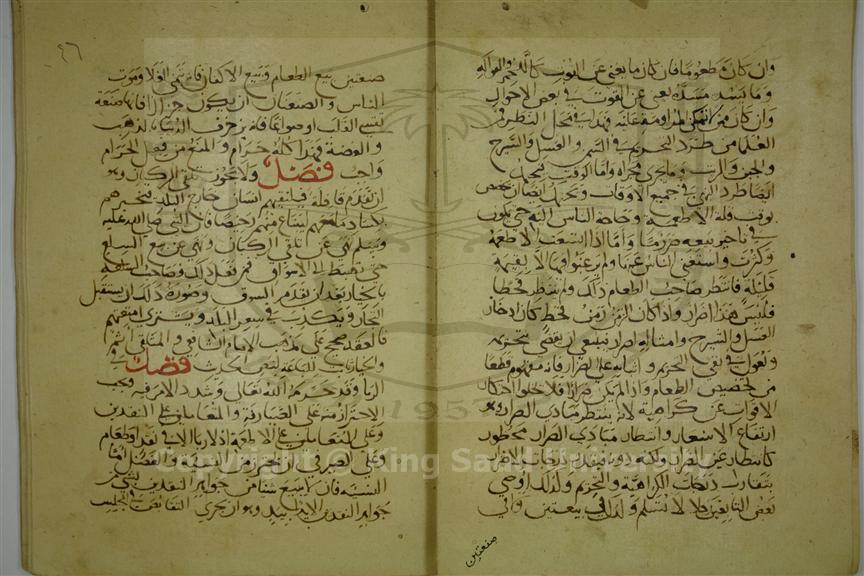 وان كان مطعوما فان كان ما يغني عن القوت كاللحم والفواكه
وما يسد مسده يغني عن القوت في بعض الاحوال
وان كان مما لا يمكن المداومة عليه فهذا في محل النظر فمن
العلما من طرد التحريم في السمن والعسل والشيرج
والجبن والزيت وما يجري مجراه واما الوقت فيحتمل
ايضا طرد النهي في جميع الاوقات ويحتمل ايضا ان يخصص
بوقت قلة الاطعمة وحاجة الناس اليه حتى يكون
في تاخير بيعه ضرر ما واما اذا اتسعت الاطعمة
وكثرت واستغنى الناس عنها ولم يرغبوا فيها الا بقيمة
قليلة فانتظر صاحب الطعام ذلك ولم ينتظر قحطا
فليس هذا اضرار واذا كان الزمن زمن قحط كان ادخار
العسل والشيرج وامثاله اضرار فينبغي ان يقضى بتحريمه
ويعول في نفي التحريم واثباته على الضرار فانه مفهوم قطعا
من تخصيص الطعام واذا لم يكن ضرار فلا يخلوا احتكار
الاقوات عن كراهية لانه ينتظر مبادي الضرار وهو
ارتفاع الاسعار وانتظار مبادي الضرار محظور
كانتظار عين الضرار ولكنه دونه فبقدر درجات الاضرار
يتفاوت درجات الكراهية والتحريم ولذلك اوصى
بعض التابعين رجلا لا تسلم ولدك في بيعتين ولا في
صنعتين
٩٦
صنعتين بيع الطعام وبيع الاكفان فانه يتمنى الغلا وموت
الناس والصنعتان ان يكون جزارا فانها صنعة
تقسي القلب او صواغا فانه يزخرف الدنيا بالذهب
والفضة فهذا كله حرام والمنع من فعل الحرام
واجب فصل ولا يجوز تلقي الركبان وهو
ان تقدم قافلة فيلتقيهم انسان خارج البلد فيخبرهم
بكساد ما معهم ليبتاع منهم رخيصا فان النبي صلى الله عليه
وسلم نهى عن تلقي الركبان ونهى عن بيع السلع
حتى تهبط الى الاسواق فمن فعل ذلك وصاحب السلعة
بالخيار بعد ان تقدم السوق وصورة ذلك ان يستقبل
التجار ويكذب في سعر البلد ويشتري امتعتهم
فالعقد صحيح على مذهب الامام الشافعي والمتلقي اثم
والخيار ثابت للبيعة لنص الحديث فصل في
الربا وقد حرمه الله تعالى وشدد الامر فيه ويجب
الاحتراز منه على الصيارفة والمتعاملين على النقدين
وعلى المتعاملين على الاطعمة اذ لا ربا الا في نقد او طعام
وعلى الصيرفي ان يحترز من النسية والفضل اما
النسية فان لا يبيع شيا من جواهر النقدين بشي من
جواهر النقدين الا يدا بيد وهو ان يجري التقابض في المجلس
Copyright © King Saud University
1957